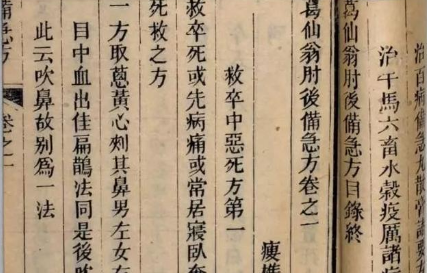 治百病備急丸散常諸要方
治牛馬六畜水穀疫厲諸病
葛仙翁肘後備急方目錄終
葛仙翁肘後備急方卷之一
救卒中惡死方第一
瘦樵
救卒死或先病痛或常居寢臥奄
死救之方
一方取葱黃心刾其鼻男左女右
目中血出佳扁鵲法同是後吹
此云吹鼻故別為一法
備急方
卷之一